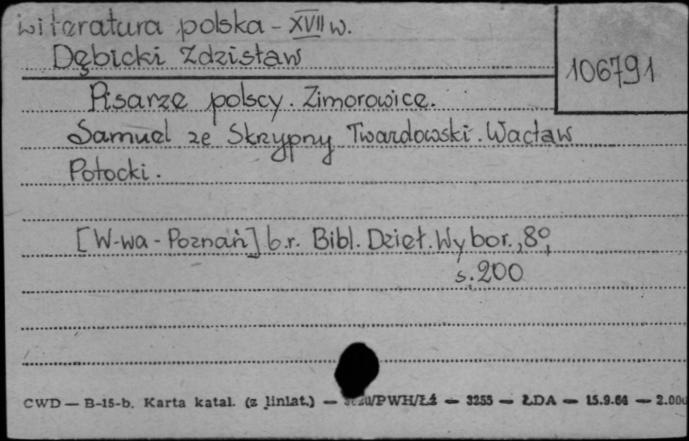 Literatura polska - XVII w.
Dębicki Zdzisław
106791
Pisarze polscy. Zimorowice.
Samuel ze Skrzypny Twardowski. Wacław
Potocki.
[W-wa - Poznań] b.r. Bibl. Dzieł. Wybor., 8°,
s. 200
CWD — B-15-b. Karta katal. (z liniat.) — /PWH/Łź — 3255 — ŁDA — 15.9.64 —